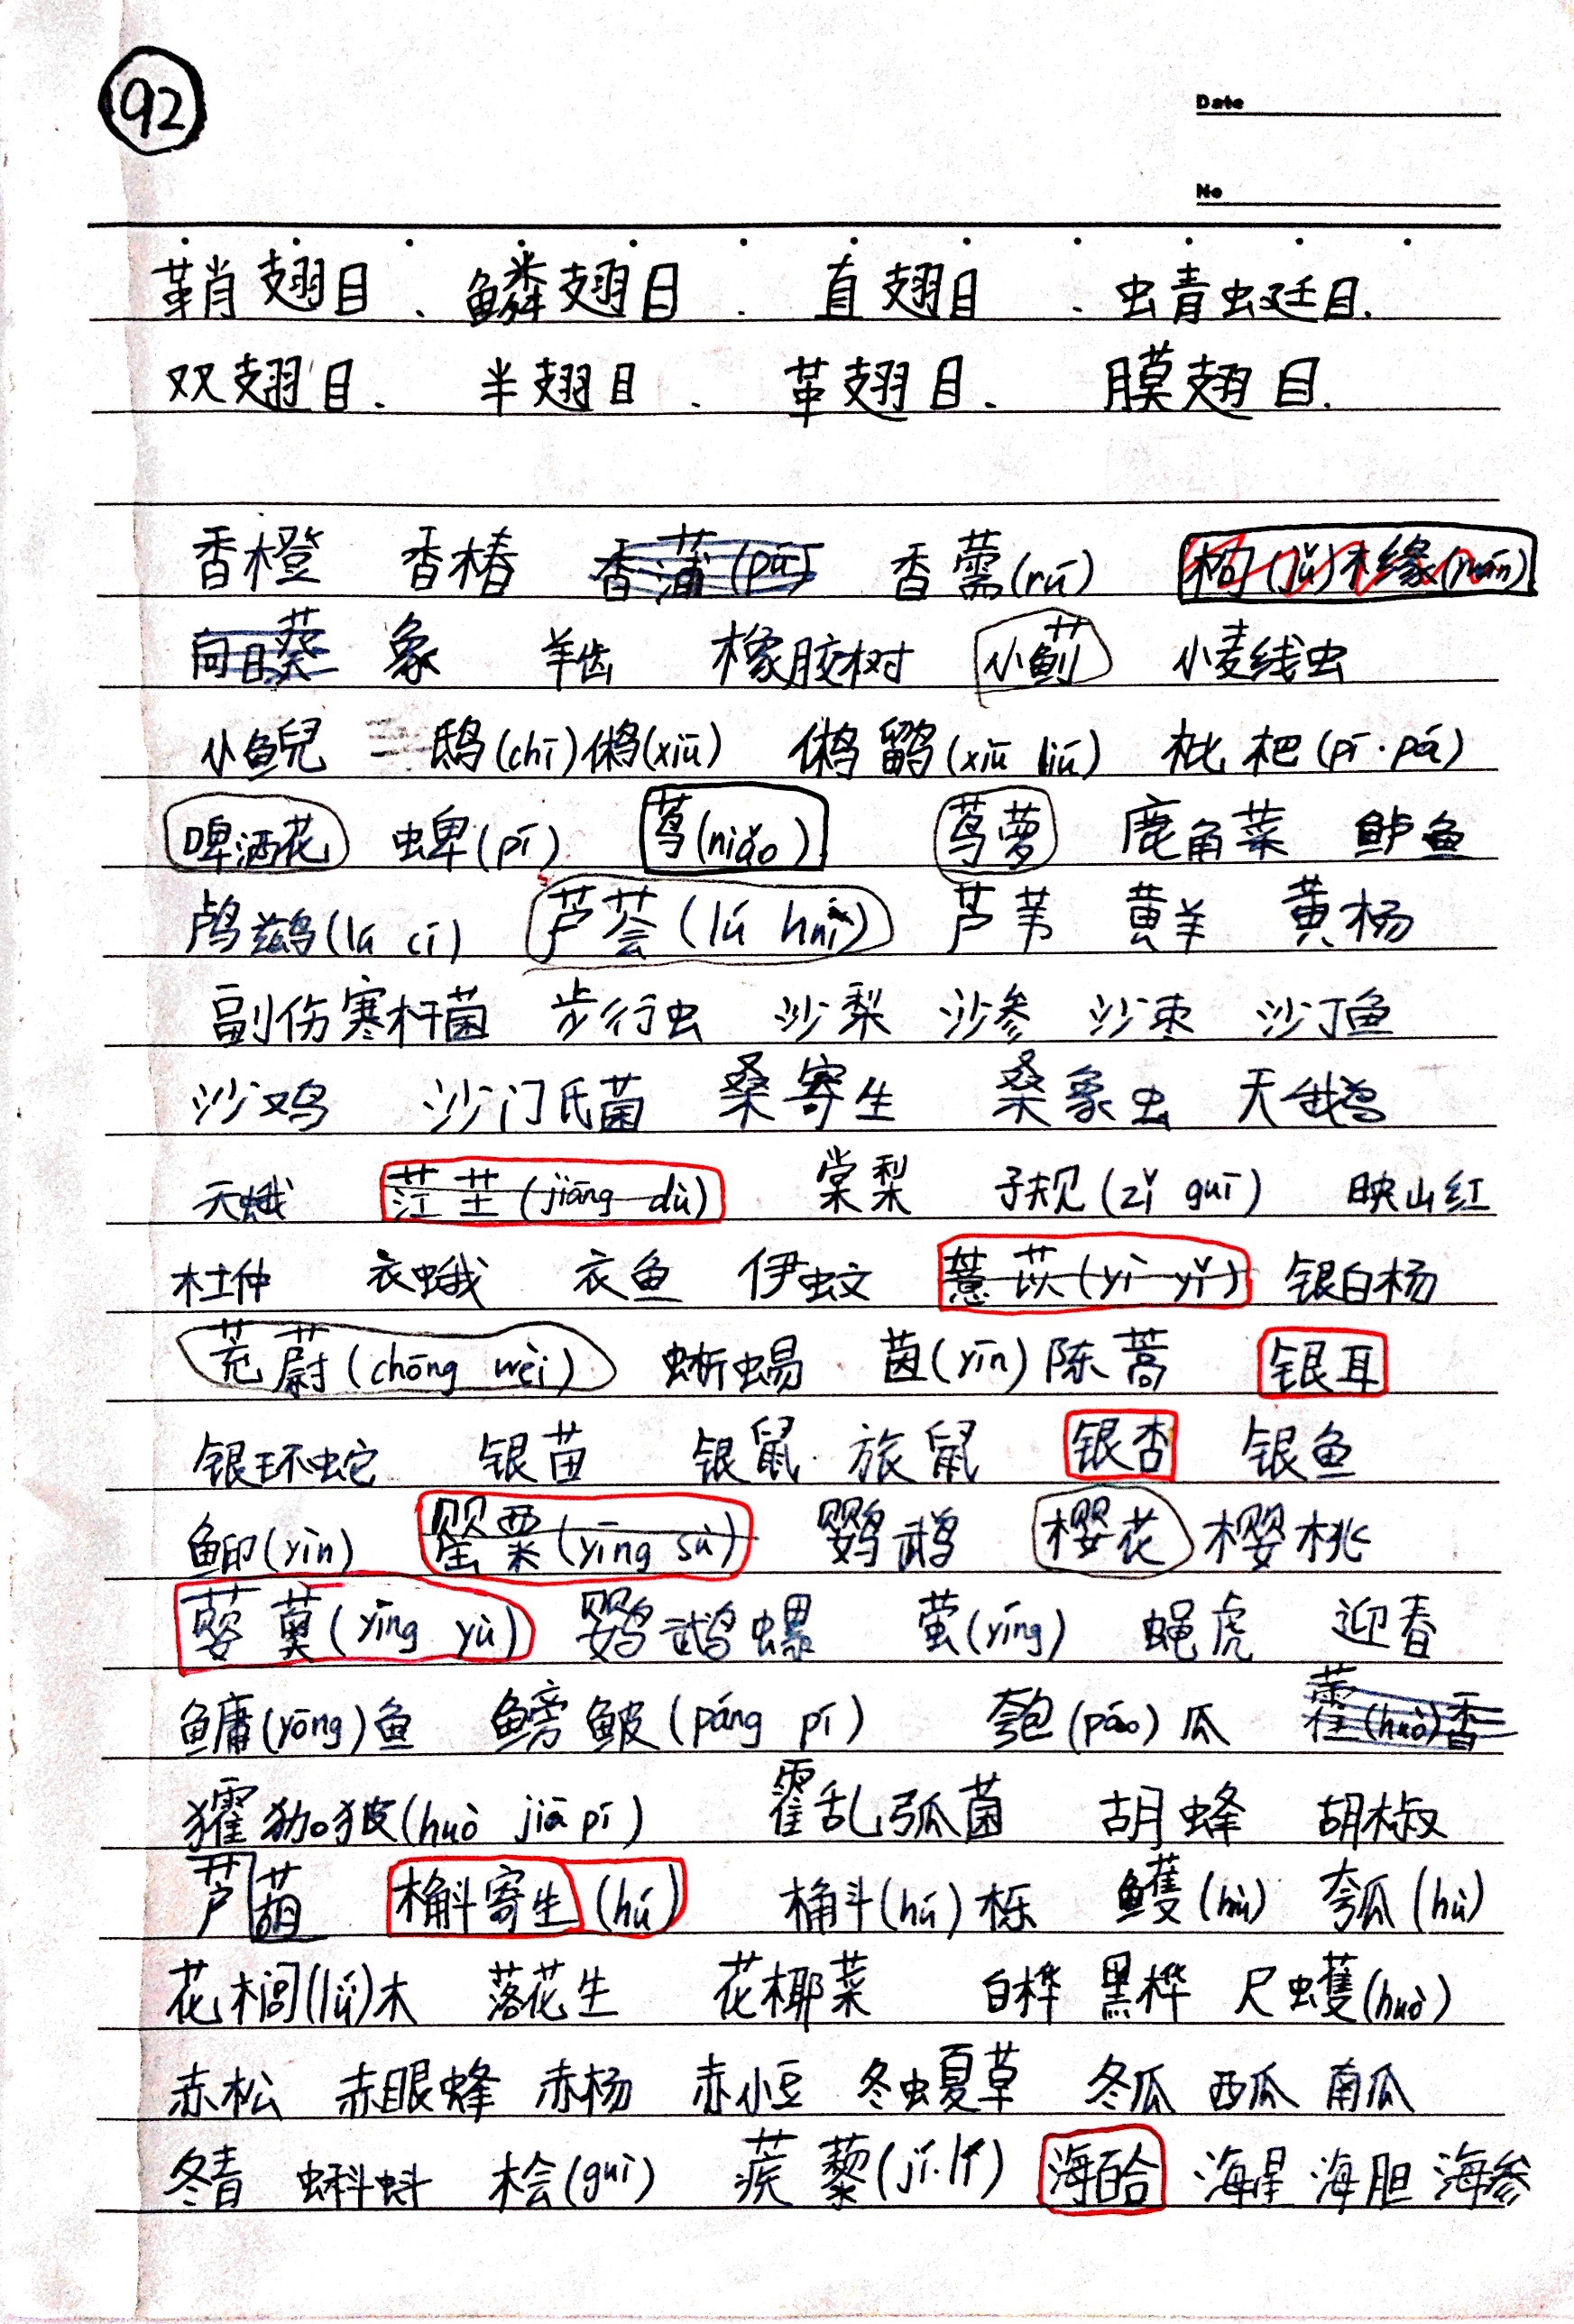 92
Date
No
鞘翅目、鳞翅目、直翅目、蜻蜓目.
双翅目.半翅目.革翅目.膜翅目.
香橙 香椿 香蒲(pú) 香薷(rú) 枸(jǔ)橼(yuán)
向日葵 象 羊齿 橡胶树 小蓟 小麦线虫
小鲵 鸱(chī)鸺(xiū) 鸺鹠(xiū liú) 枇杷(pí·pá)
啤酒花 蜱(pí) 茑(niǎo) 茑萝 鹿角菜 鲈鱼
鸬鹚(lú cí) 芦荟(lú huì) 芦苇 黄羊 黄杨
副伤寒杆菌 步行虫 沙梨 沙参 沙枣 沙丁鱼
沙鸡 沙门氏菌 桑寄生 桑象虫 天鹅
天蛾 茳芏(jiāng dù) 棠梨 子规(zǐ guī) 映山红
杜仲 衣蛾 衣鱼 伊蚊 薏苡(yì yǐ) 银白杨
茺蔚(chōng wèi) 蜥蜴 茵(yīn)陈蒿 银耳
银环蛇 银苗 银鼠 旅鼠 银杏 银鱼
鮣(yìn) 罂粟(yīng sù) 鹦鹉 樱花 樱桃
蘡薁(yīng yù) 鹦鹉螺 萤(yíng) 蝇虎 迎春
鳙(yōng)鱼 鳑鲏(páng pí) 匏(páo)瓜 藿(huò)香
㺢㹢狓(huò jiā pí) 霍乱弧菌 胡蜂 胡椒
芦葫 槲寄生(hú) 槲(hú)栎 鳠(hù) 瓠(hù)
花榈(lǘ)木 落花生 花椰菜 白桦 黑桦 尺蠖(huò)
赤松 赤眼蜂 赤杨 赤小豆 冬虫夏草 冬瓜 西瓜 南瓜
冬青 蝌蚪 桧(guì) 蒺藜(jí·lí) 海百合 海星 海胆 海参